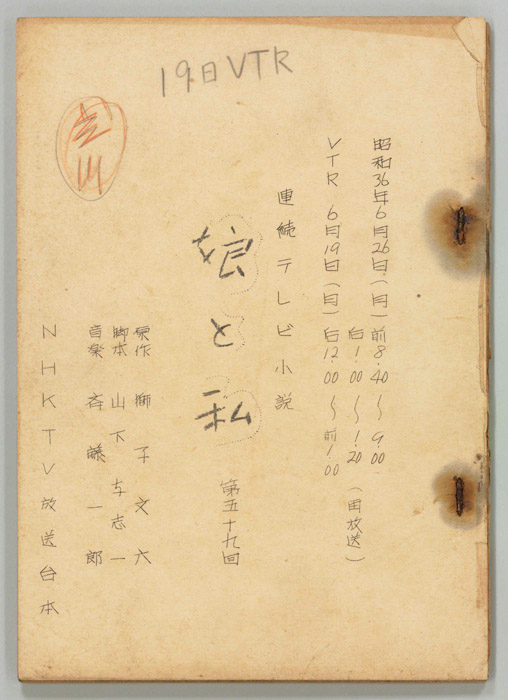 19日VTR
昭和36年6月26日(月)前8.40〜9.00
后1.00〜1.20
(再放送)
VTR 6月19日(月)后12.00〜前1.00
連続テレビ小説
娘と私
第五十九回
原作 獅子文六
脚本 山下与志一
音楽 斉藤一郎
NHKTV放送台本